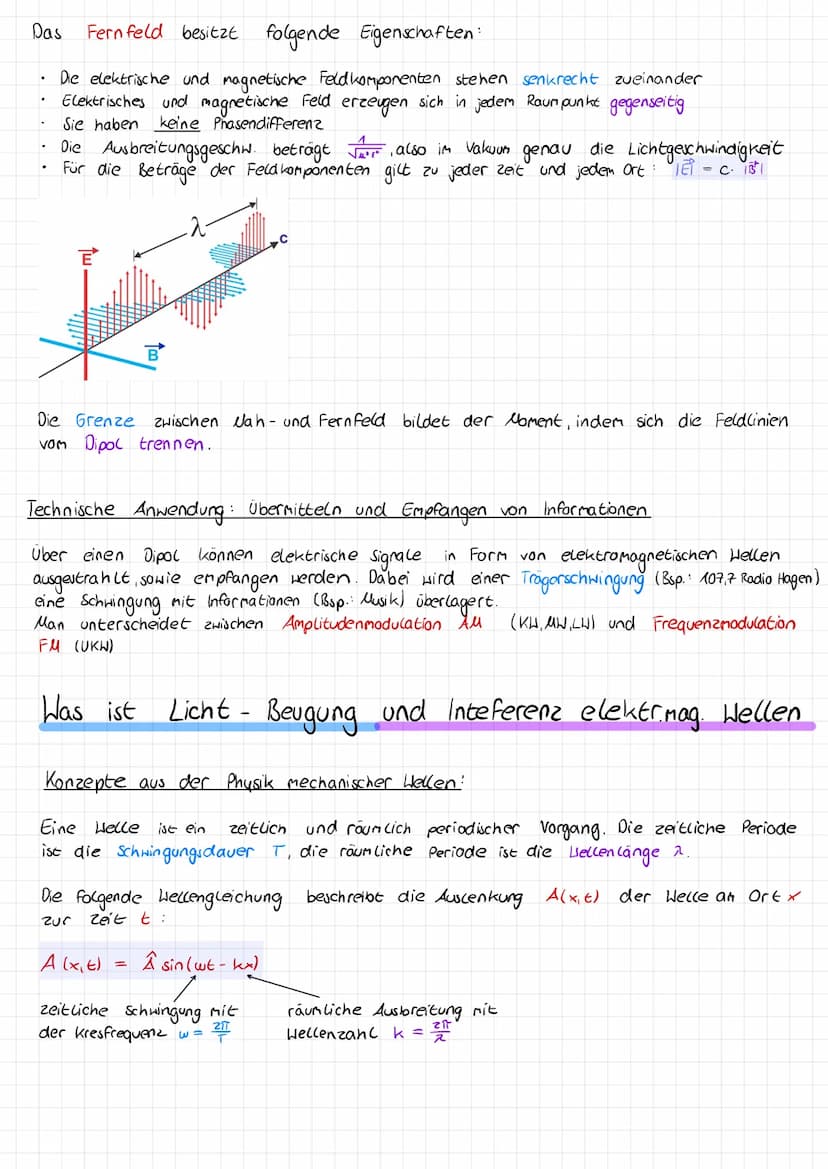 Das Fernfeld besitzt folgende Eigenschaften:
• Die elektrische und magnetische Feldkomponenten stehen senkrecht zueinander
• Elektrisches und magnetische Feld erzeugen sich in jedem Raumpunkt gegenseitig
• Sie haben keine Phasendifferenz
• Die Ausbreitungsgeschw. beträgt, also im Vakuum genau die Lichtgeschwindigkeit
• Für die Beträge der Feldkomponenten gilt zu jeder Zeit und jedem Ort: |E⃗| = c · |B⃗|
λ
c
E⃗
B⃗
Die Grenze zwischen Nah- und Fernfeld bildet der Moment, indem sich die Feldlinien
vom Dipol trennen.
Technische Anwendung: Übermitteln und Empfangen von Informationen
Über einen Dipol können elektrische Signale in Form von elektromagnetischen Wellen
ausgestrahlt, sowie empfangen werden. Dabei wird einer Trägerschwingung (Bsp.: 107,7 Radio Hagen)
eine Schwingung mit Informationen (Bsp.: Musik) überlagert.
Man unterscheidet zwischen Amplitudenmodulation AM (KW, MW, LW) und Frequenzmodulation
FM (UKW)
Was ist Licht - Beugung und Inteferenz elektr.mag. Wellen
Konzepte aus der Physik mechanischer Wellen:
Eine Welle ist ein zeitlich und räumlich periodischer Vorgang. Die zeitliche Periode
ist die Schwingungsdauer T, die räumliche Periode ist die Wellenlänge λ.
Die folgende Wellengleichung beschreibt die Auslenkung A(x,t) der Welle am Ort x
zur Zeit t:
A(x,t) = Â sin(ωt - kx)
zeitliche Schwingung mit
der Kresfrequenz ω = 2π/T
räumliche Ausbreitung mit
Wellenzahl k = 2π/λ